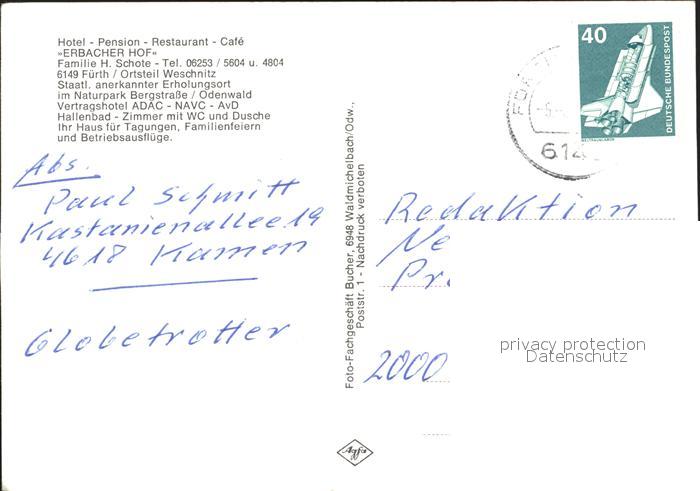 Hotel - Pension - Restaurant - Café
»ERBACHER HOF«
Familie H. Schote - Tel. 06253 / 5604 u. 4804
6149 Fürth / Ortsteil Weschnitz
Staatl. anerkannter Erholungsort
im Naturpark Bergstraße / Odenwald
Vertragshotel ADAC - NAVC - AvD
Hallenbad - Zimmer mit WC und Dusche
Ihr Haus für Tagungen, Familienfeiern
und Betriebsausflüge.
Abs.
Paul Schmitt
Kastanienallee 19
4618 Kamen
Globetrotter
Foto-Fachgeschäft Bucher, 6948 Waldmichelbach/Odw.,
Poststr. 1 - Nachdruck verboten
Agfa
40
DEUTSCHE BUNDESPOST
WELTRAUMLABOR
614
Redaktion
Ne
Pr.
2000
privacy protection
Datenschutz